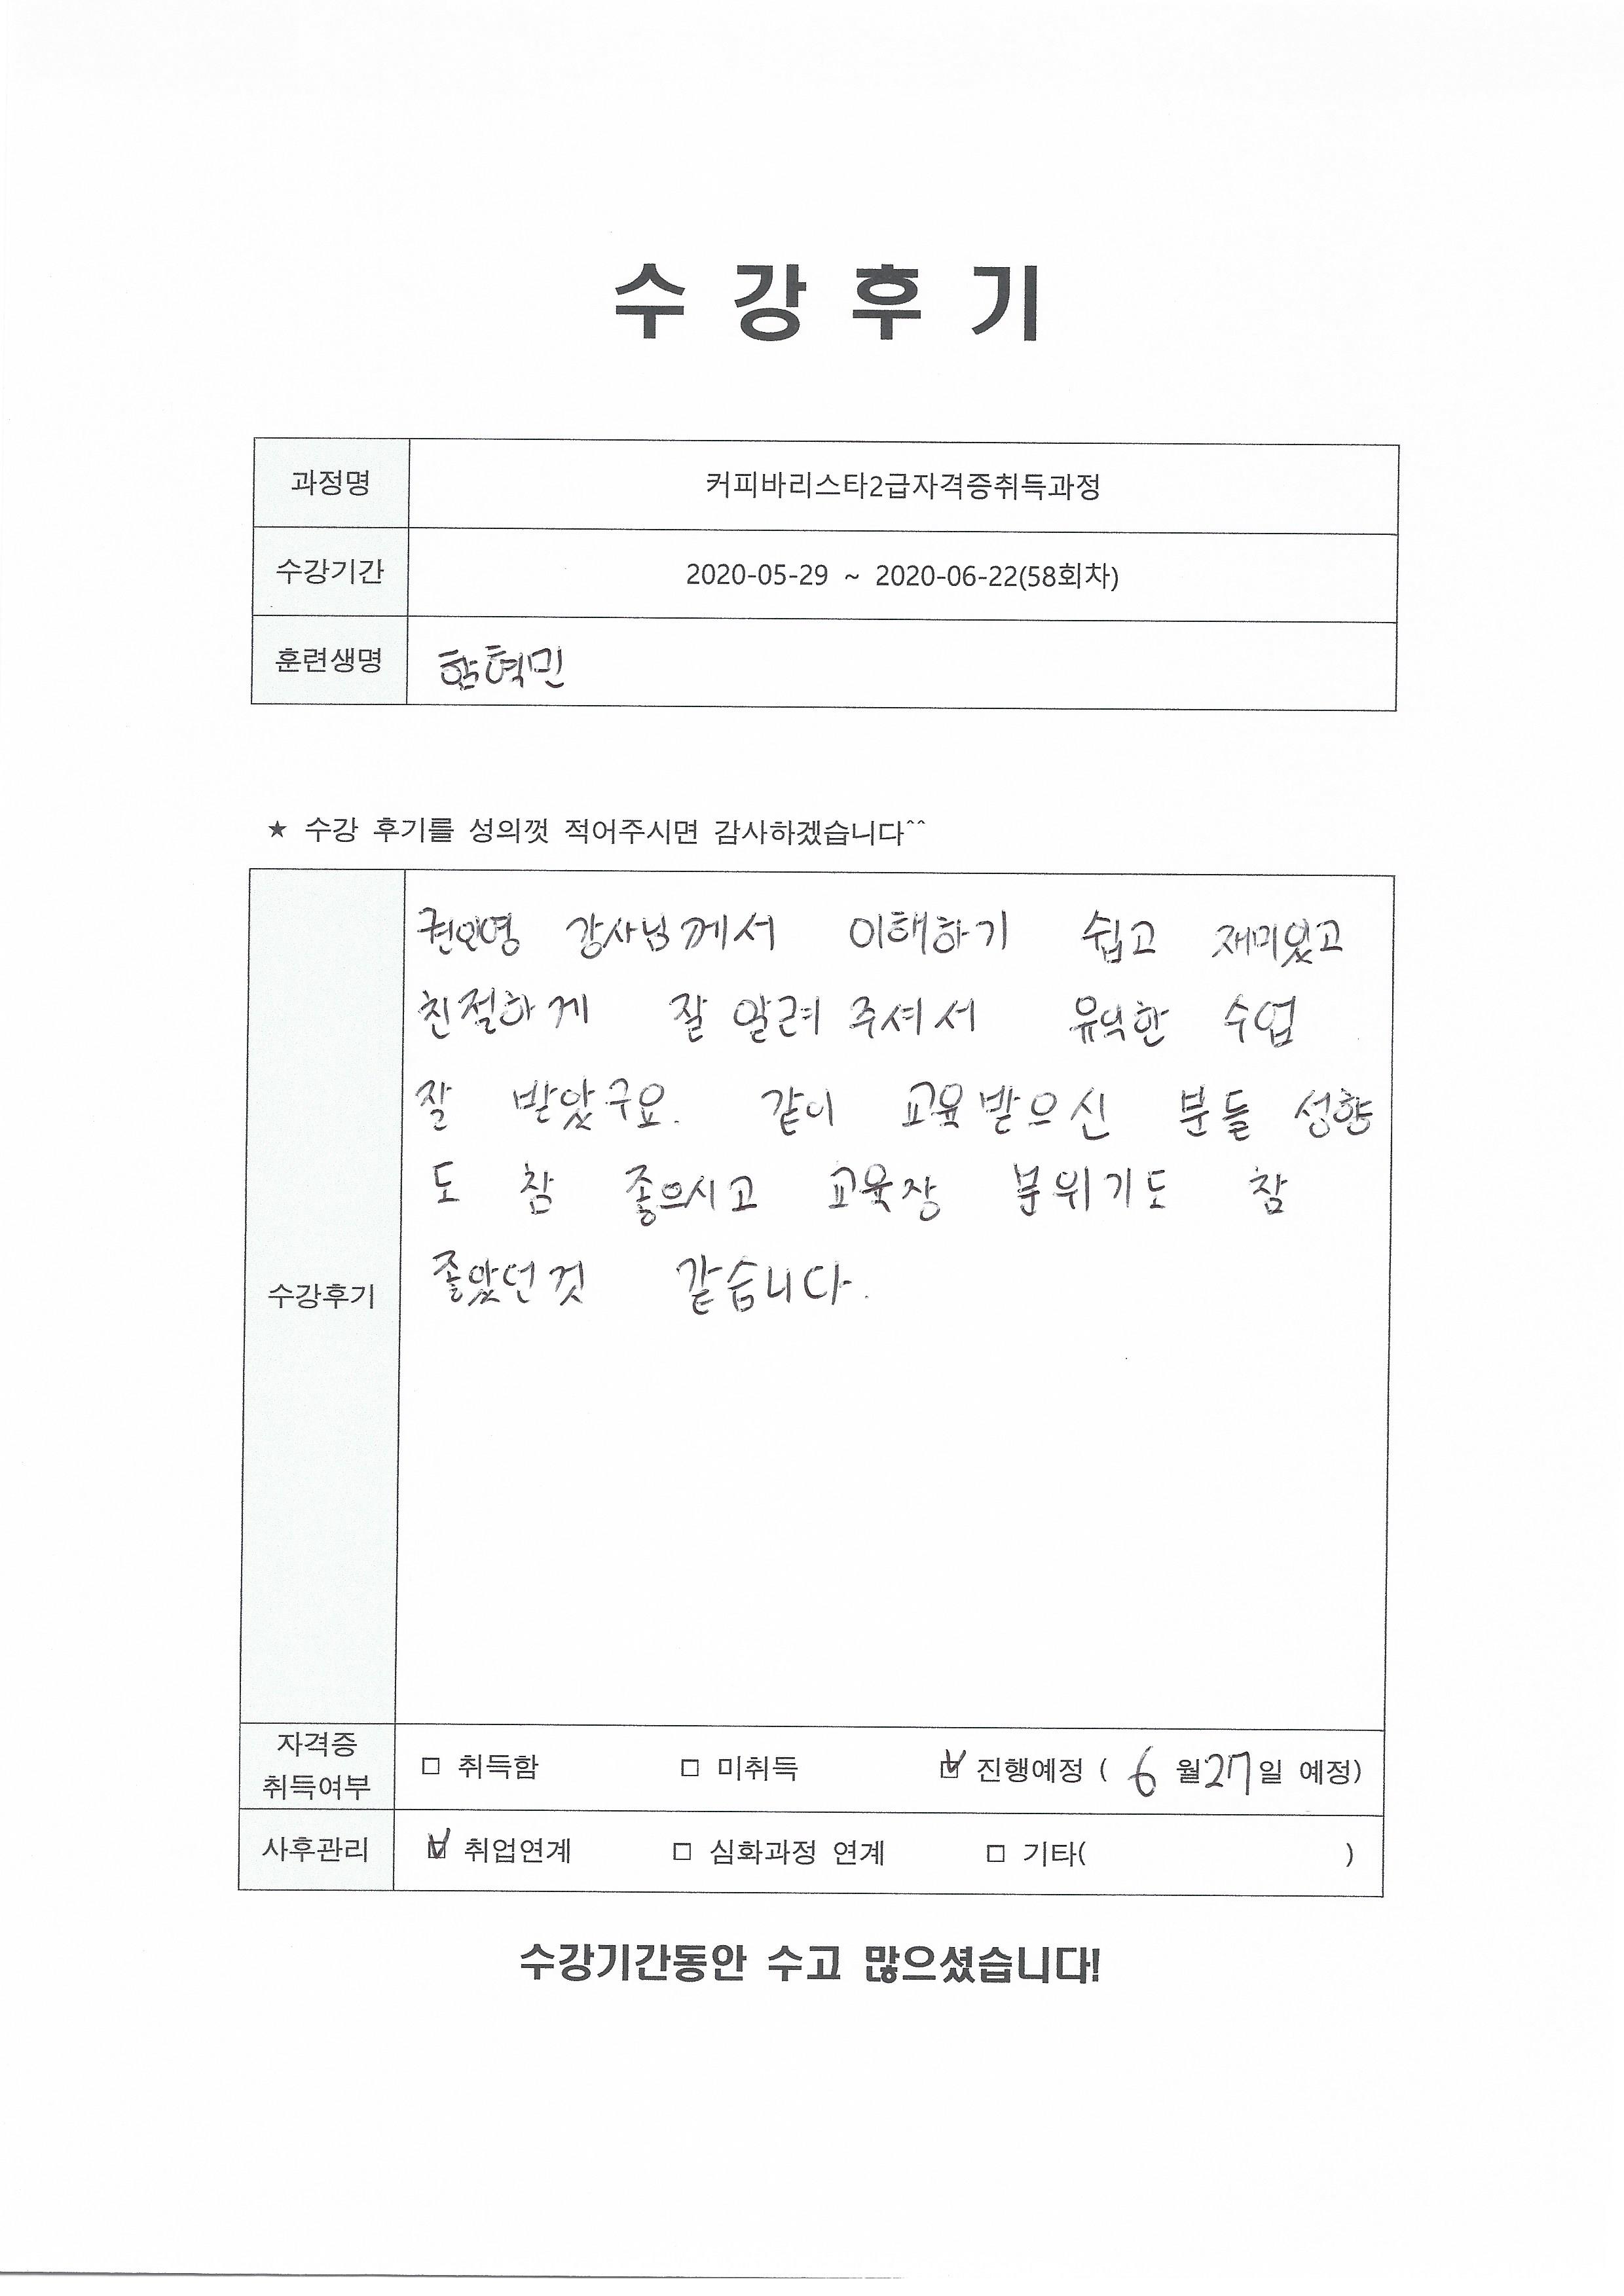 수 강 후 기
과정명 커피바리스타2급자격증취득과정
수강기간 2020-05-29 ~ 2020-06-22(58회차)
훈련생명 함혁민
★ 수강 후기를 성의껏 적어주시면 감사하겠습니다^^
권인영 강사님께서 이해하기 쉽고 재미있고
친절하게 잘 알려 주셔서 유익한 수업
잘 받았구요. 같이 교육받으신 분들 성향
도 참 좋으시고 교육장 분위기도 참
좋았던것 같습니다.
수강후기
자격증
취득여부
□ 취득함 □ 미취득 ☑ 진행예정 ( 6 월 27 일 예정)
사후관리 ☑ 취업연계 □ 심화과정 연계 □ 기타( )
수강기간동안 수고 많으셨습니다!